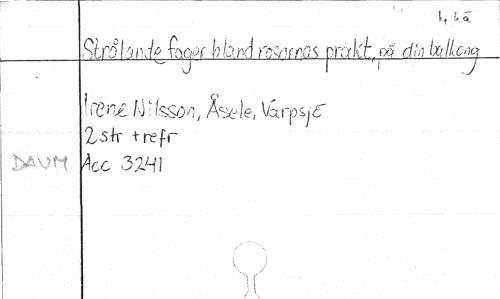 h, kä
Strålande fager bland rosornas prakt, på din balkong
Irene Nilsson, Åsele, Varpsjö
2 str + refr
DAUM Acc 3241